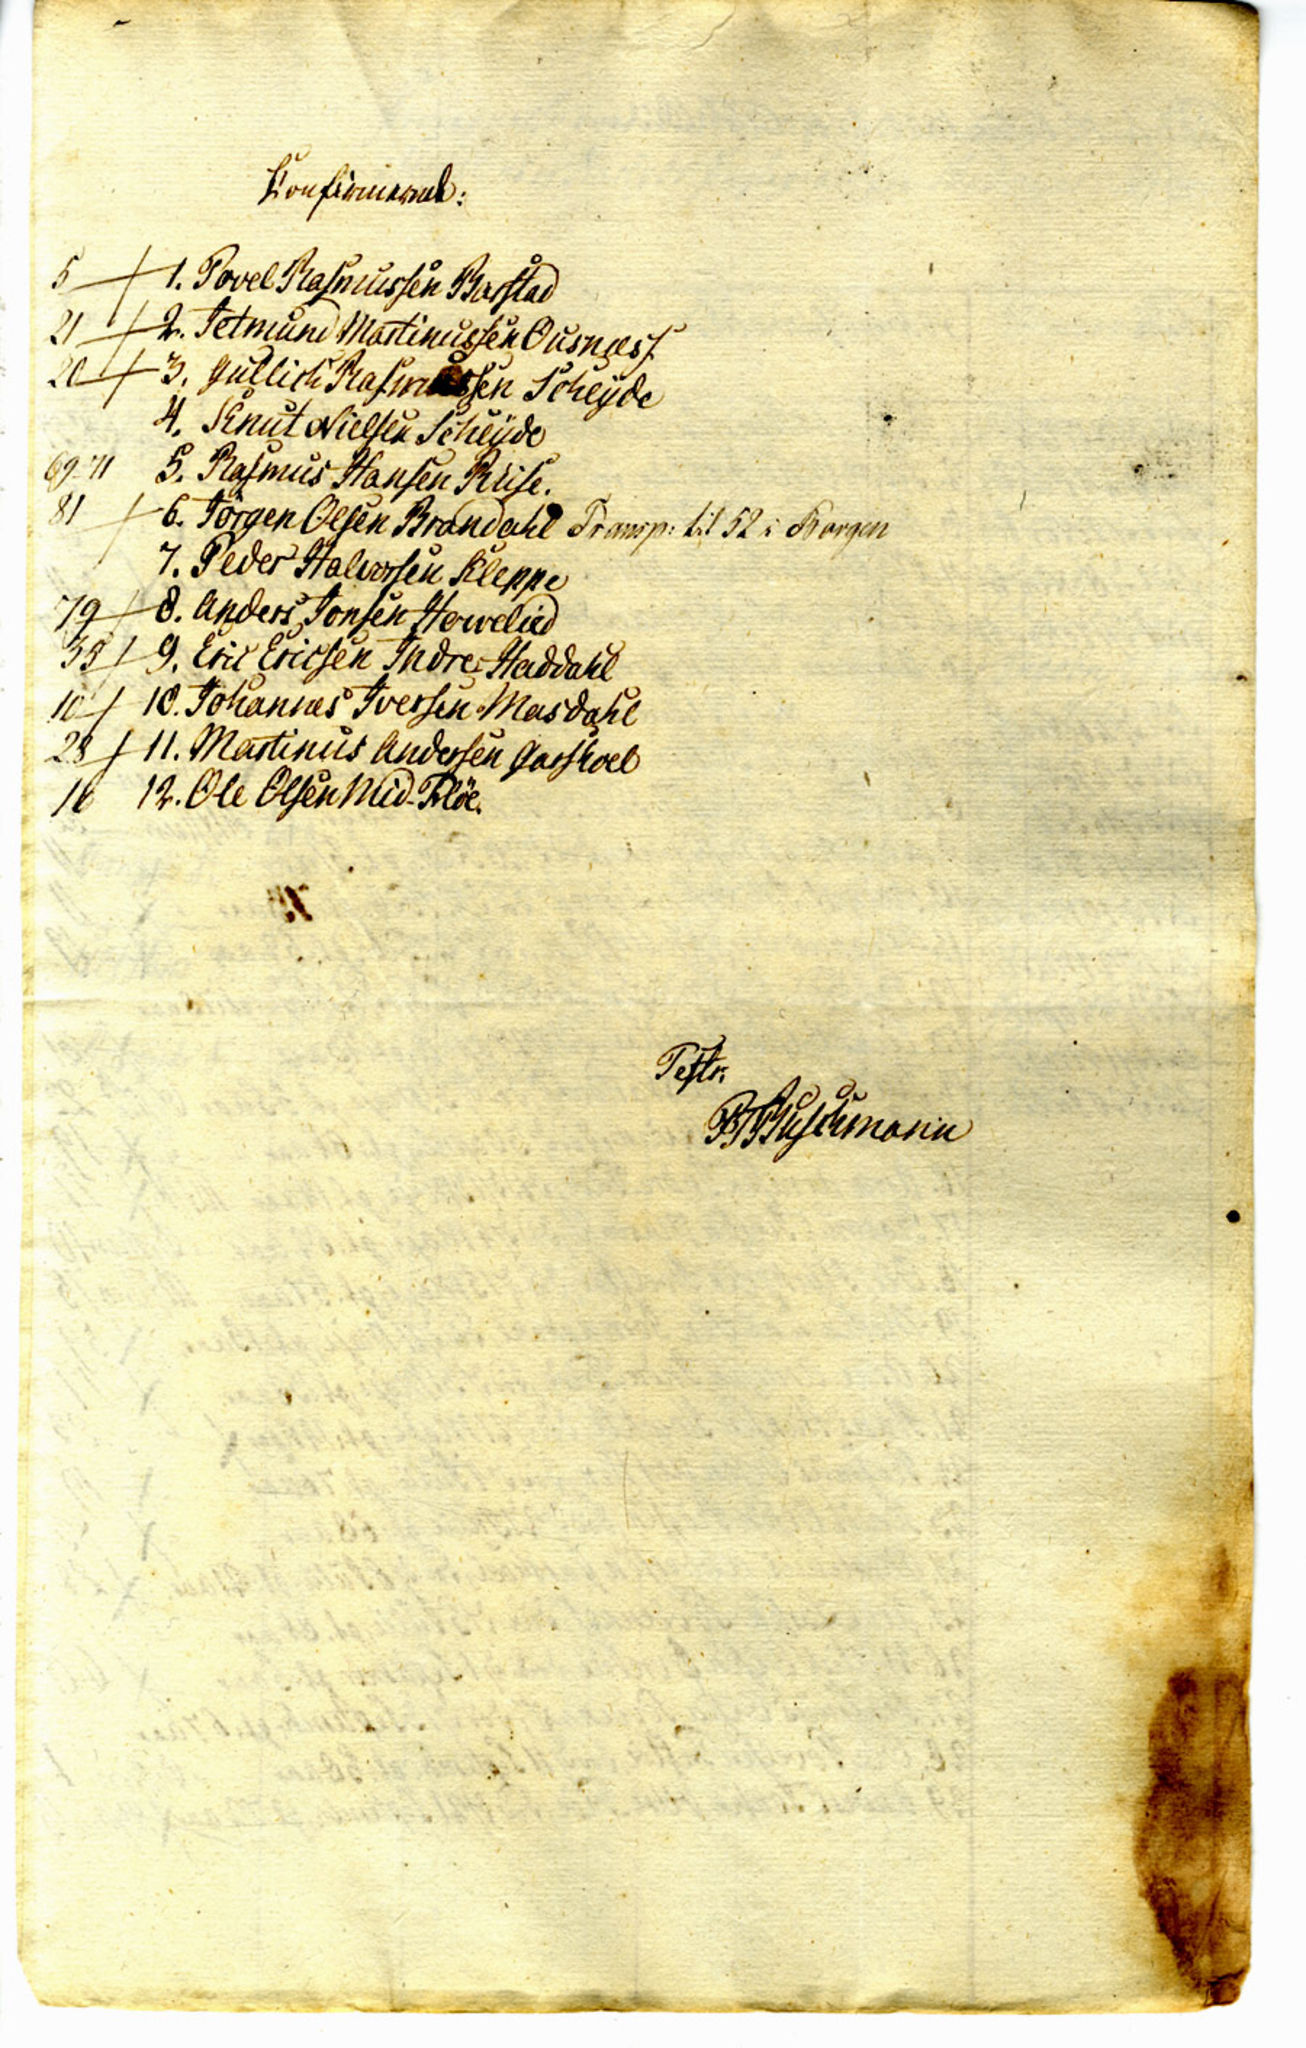 Konfirmerede:
5 1. Povel Rasmussen Barstad
21 2. Jetmund Martinussen Ousness
20 3. Gullich Rasmussen Scheyde
4. Knut Nielsen Scheyde
69-71 5. Rasmus Hansen Riise.
81 6. Jørgen Olsen Brandahl Transp: til 52 i Borgen
7. Peder Halvorsen Kleppe
79 8. Anders Jonsen Howelied
35 9. Eric Ericsen Indre Haddahl
10 10. Johannes Iversen Masdahl
28 11. Martinus Andersen Garshoel
16 12. Ole Olsen Mid-Fløe.
Testr.
Buschmann